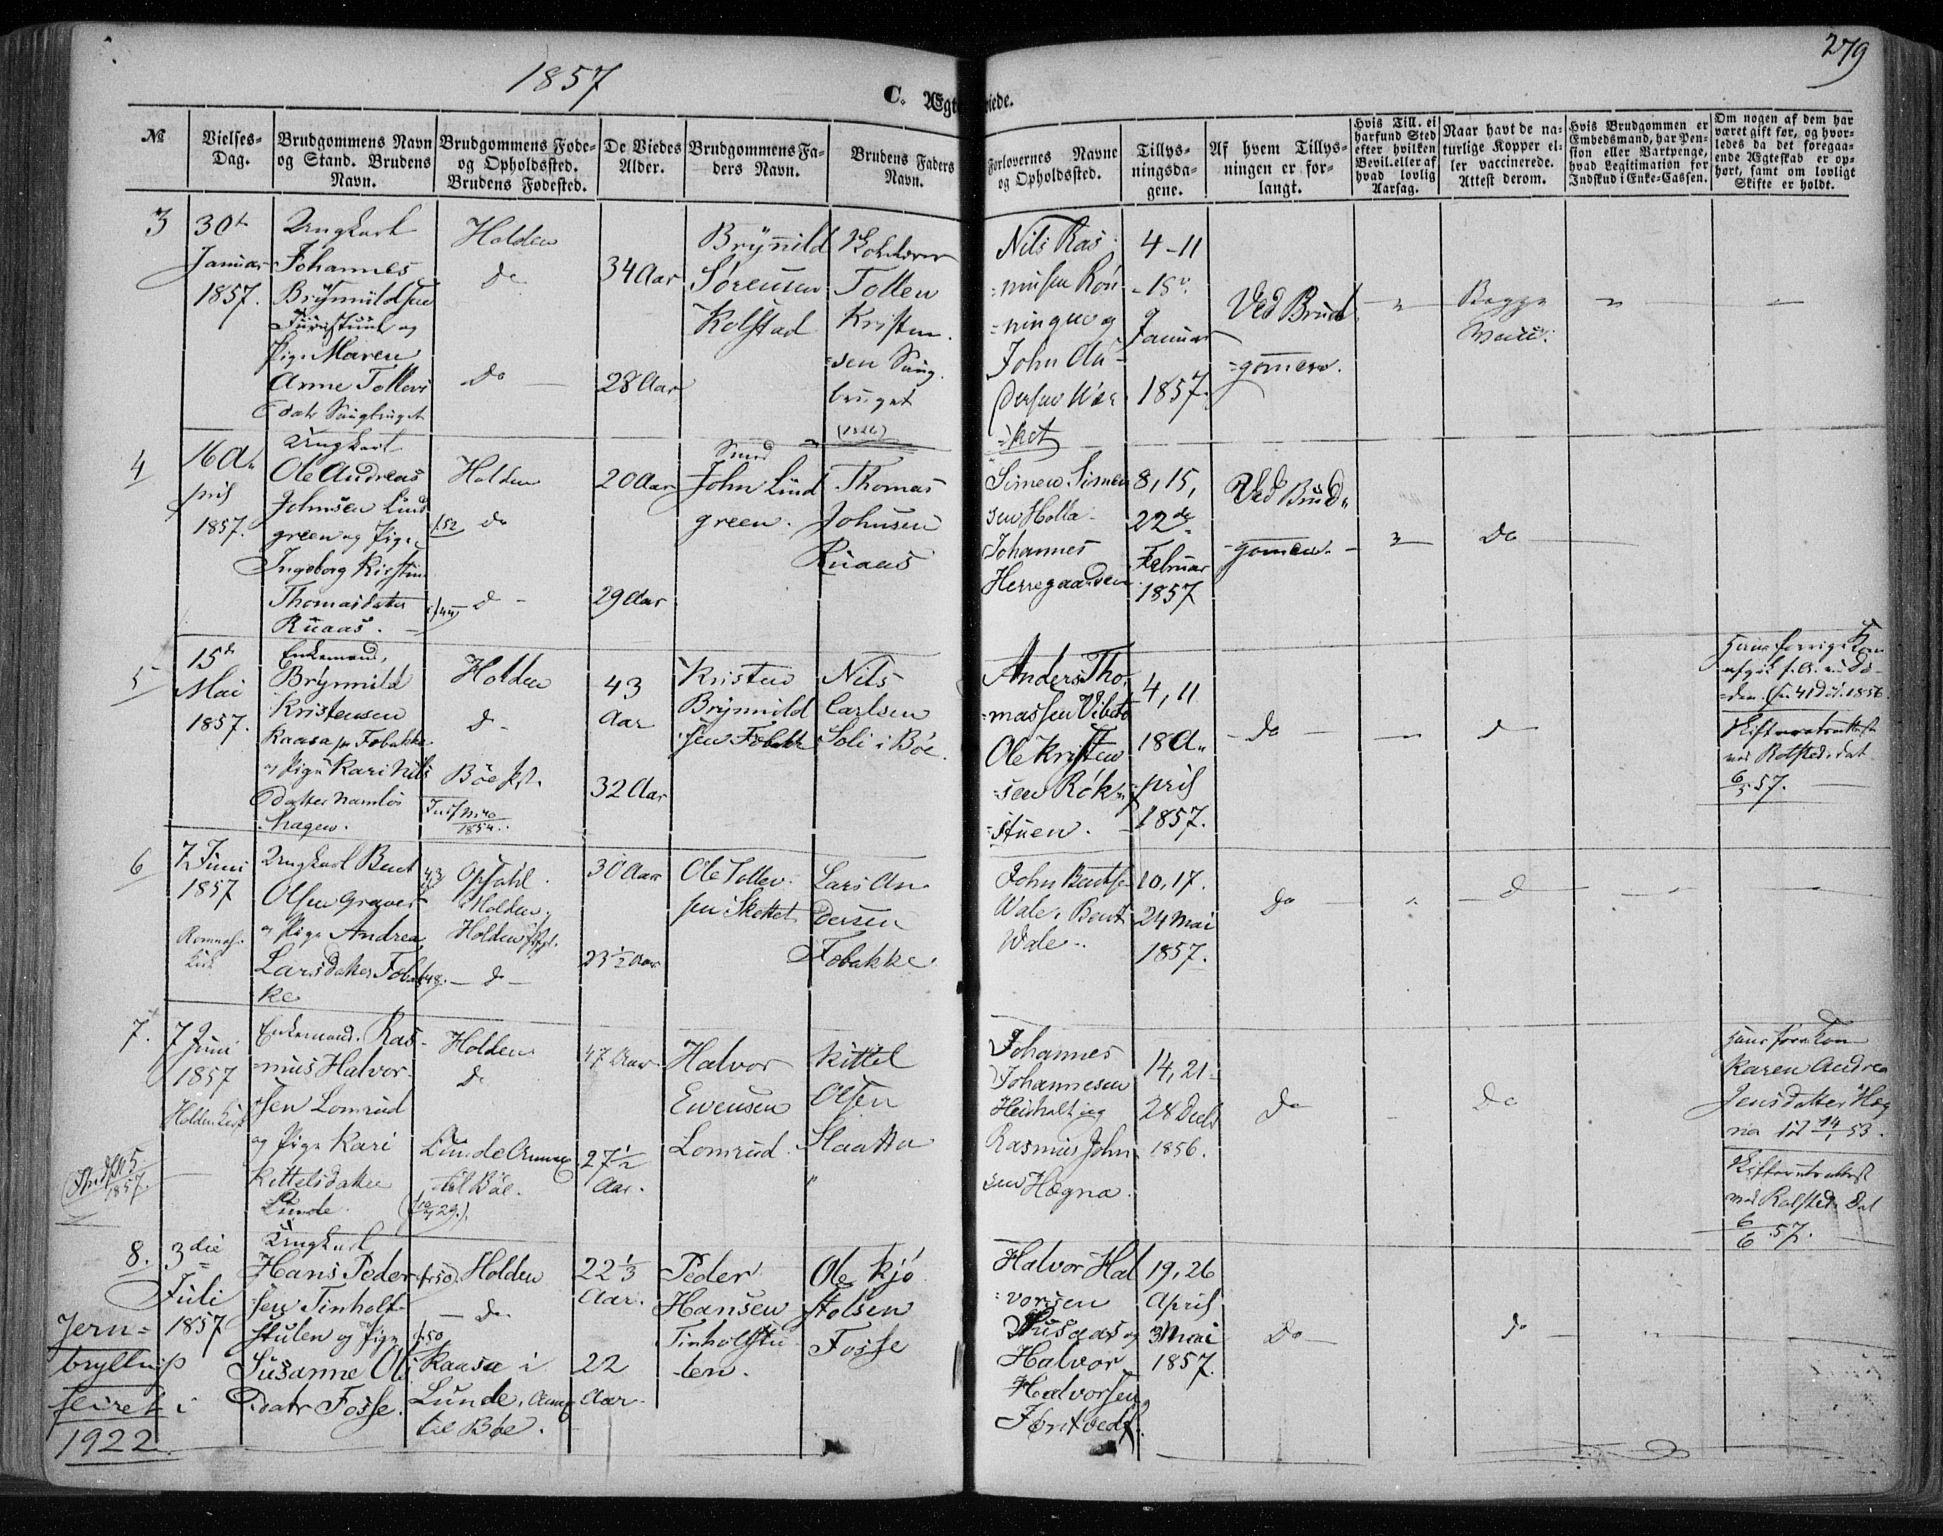 1857
279
C. Ægteviede.
№
Vielses-
Dag.
Brudgommens Navn
og Stand. Brudens
Navn.
Brudgommens Føde-
og Opholdssted.
Brudens Fødested.
De Viedes
Alder.
Brudgommens Fa-
ders Navn.
Brudens Faders
Navn.
Forlovernes Navne
og Opholdssted.
Tillys-
ningsda-
gene.
Af hvem Tillys-
ningen er for-
langt.
Hvis Till. ei
har fund Sted
efter hvilken
Bevil. eller af
hvad lovlig
Aarsag.
Naar havt de na-
turlige Kopper el-
ler vaccinerede.
Attest derom.
Hvis Brudgommen er
Embedsmand, har Pen-
sion eller Vartpenge,
hvad Legitimation for
Indskud i Enke-Cassen.
Om nogen af dem har
været gift før, og hvor-
ledes da det foregaa-
ende Ægteskab er op-
hørt, samt om lovligt
Skifte er holdt.
3
30te
Januar
1857.
Ungkarl
Johannes
Brynnildsen
og
Pige Maren
Anne Tollevs
datr
Holden
do
do
34 Aar
28 Aar
Brynnild
Sørensen
Kolstad
Tollev
Kristen
-sen
Nils Ras-
-musen Røn
-ningen og
John
4-11
-18
Januar
1857.
Ved Brud
-gommen.
Begge
Vacc.
4
16 A-
pril
1857.
Ungkarl
Ole Andreas
Johnsen Lind
green og Pige
Ingeborg Kirstine
Thomasdatter
Ruaas.
Holden
do
do
20 Aar
29 Aar
Smed
John Lind
green.
Thomas
Johnsen
Ruaas
Simen Simen
sen Holla
Johannes
Herregaardsen
8, 15,
22de
Februar
1857
Ved Brud-
-gommen.
Do
5
15de
Mai
1857.
Enkemand,
Brynnild
Kristensen
Raasa pr Fobakke
og Pige Kari Nils
datter Namløs
hagen.
Holden
do
Bøe Pst.
1854
43
Aar
32 Aar
Kristen
Brynnild
sen Fobakke
Nils
Carlsen
Soli i Bøe.
Anders Tho-
massen Vibeto
Ole Kristen
-sen Rök-
-stuen.
4, 11
18 A-
pril
1857.
do
do
Hans forrige Kone
1856
Skifteattest
dat
6/5 57.
6
7 Juni
1857
Romnæs
Kirke
Ungkarl Bent
Olsen Graver
og Pige Andrea
Larsdatter Fobak
ke
Opsahl
i Holden,
Holden
do
30 Aar
23½ Aar
Ole Tollev-
sen Skottet
Lars An-
dersen
Fobakke.
John Bentse
Wale, Bent
Wale
10, 17.
24 Mai
1857.
do
d
7.
7
Juni
1857
Holden Kirke
Enkemand. Ras-
-mus Halvor-
-sen Lomrud
og Pige Kari
Kittelsdatter
Lunde.
Holden
do
Lunde Annex
til Bøe.
47 Aar
27½
Aar.
Halvor
Evensen
Lomrud.
Kittel
Olsen
Slaatta
Johannes
Johannesen
Heisholt og
Rasmus John
sen Hægna.
14, 21-
28 Decbr
1856.
do
do
Hans forr. Kone
Karen Andrea
Jensdatter Hæg
na
53.
Skifteattest
dat
6/6 57.
5
1857
8.
3die
Juli
1857
Ungkarl
Hans Peder
sen Tinholt-
stulen og Pige
Susanne Ols
datr Fosse.
Holden
do
Raasa i
Lunde, Annex
til Bøe.
22 1/3
Aar.
22
Aar
Peder
Hansen
Tinholtstu
len.
Ole Kjö
stolsen
Fosse
Halvor Hal
-vorsen
og
Halvor
Halvorsen
19, 26
April
3 Mai
1857.
Do
do
Jern-
bryllup
feiret i
1922